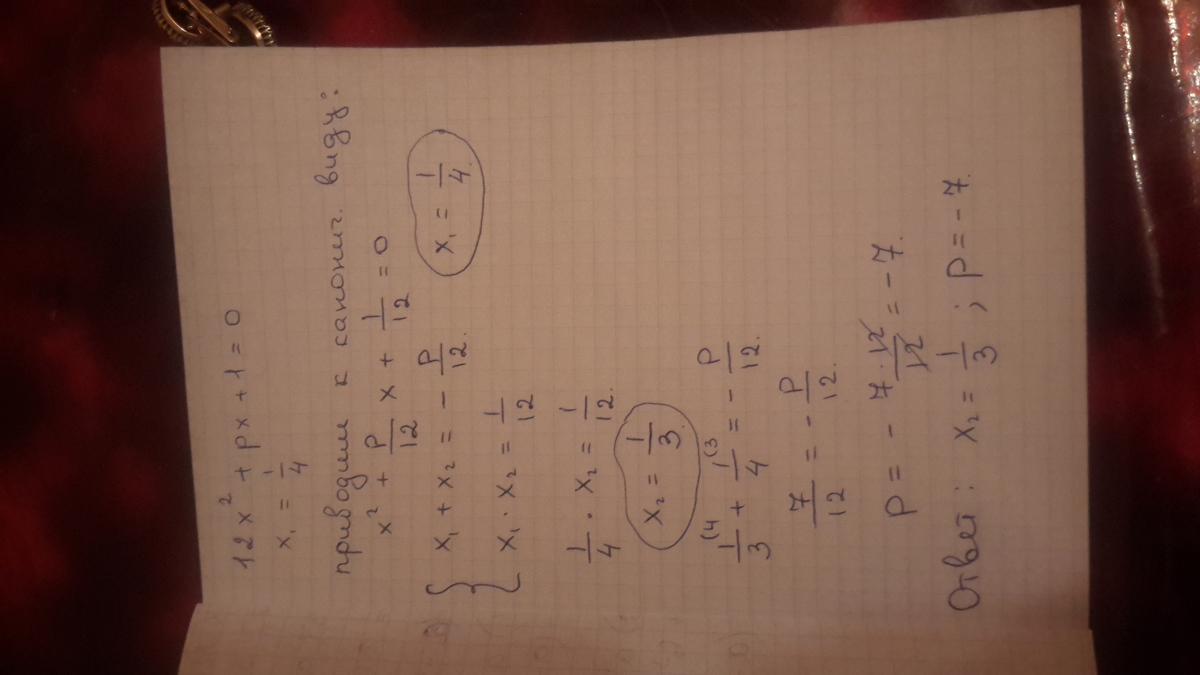 12x² + px + 1 = 0
x₁ = 1/4
приводим к канонич. виду:
x² + p/12 x + 1/12 = 0
{ x₁ + x₂ = - p/12. x₁ = 1/4.
x₁ · x₂ = 1/12
1/4 · x₂ = 1/12.
x₂ = 1/3.
1/3 (4 + 1/4 (3 = - p/12.
7/12 = - p/12.
p = - 7·12/12 = -7.
Ответ: x₂ = 1/3 ; p = -7.